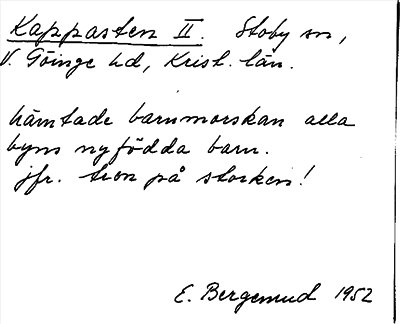 Kappasten II. Stoby sn,
V. Göinge hd, Krist. län.
hämtade barnmorskan alla
byns nyfödda barn.
jfr. tron på storken!
E. Bergemud 1952